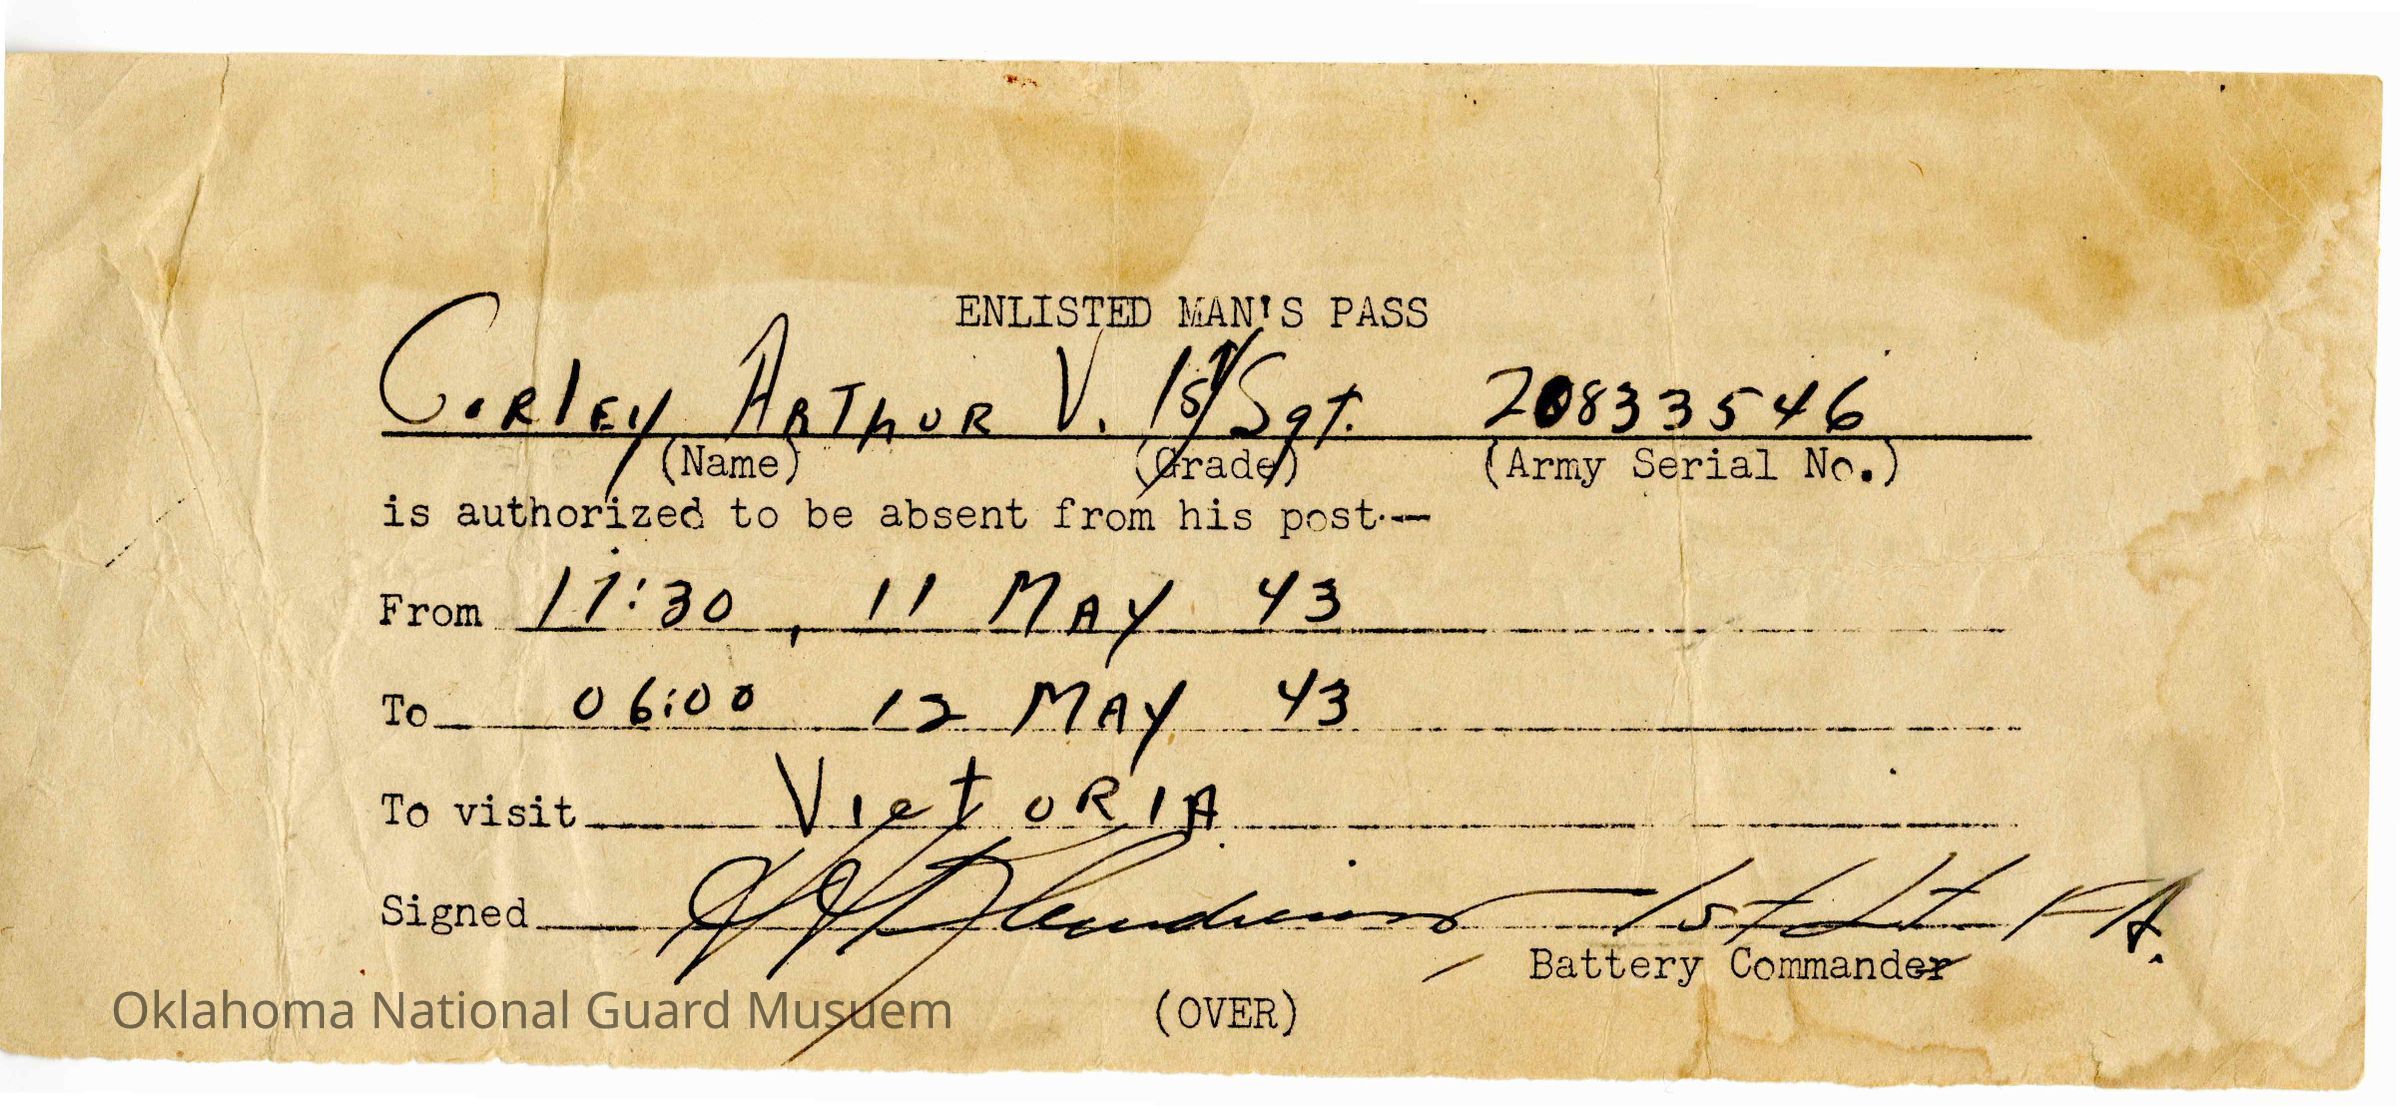 ENLISTED MAN'S PASS
Corley Arthur V. 1st/Sgt. 20833546
(Name) (Grade) (Army Serial No.)
is authorized to be absent from his post--
From 17:30, 11 May 43
To 06:00 12 May 43
To visit Victoria
Signed 1st Lt FA.
Battery Commander
(OVER)
Oklahoma National Guard Musuem